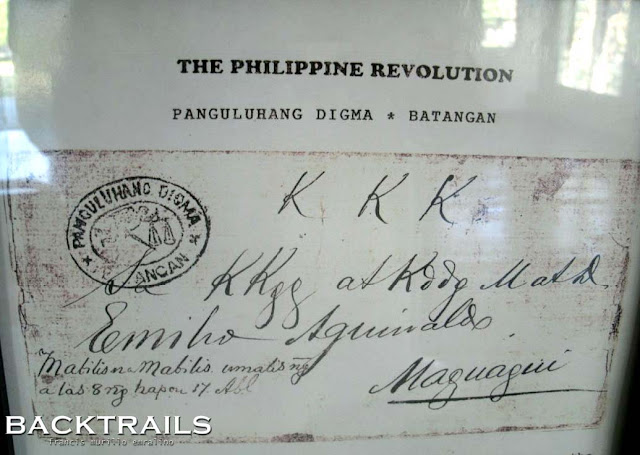 THE PHILIPPINE REVOLUTION
PANGULUHANG DIGMA * BATANGAN
PANGULUHANG DIGMA
ANGAN
K K K
Sa KKgg at Kddg Mat D.
Emilio Aguinaldo
Mabilis na Mabilis umalis ng
a las 8 ng hapon 17 Abl
Maguagui
BACKTRAILS
francis murillo emralino